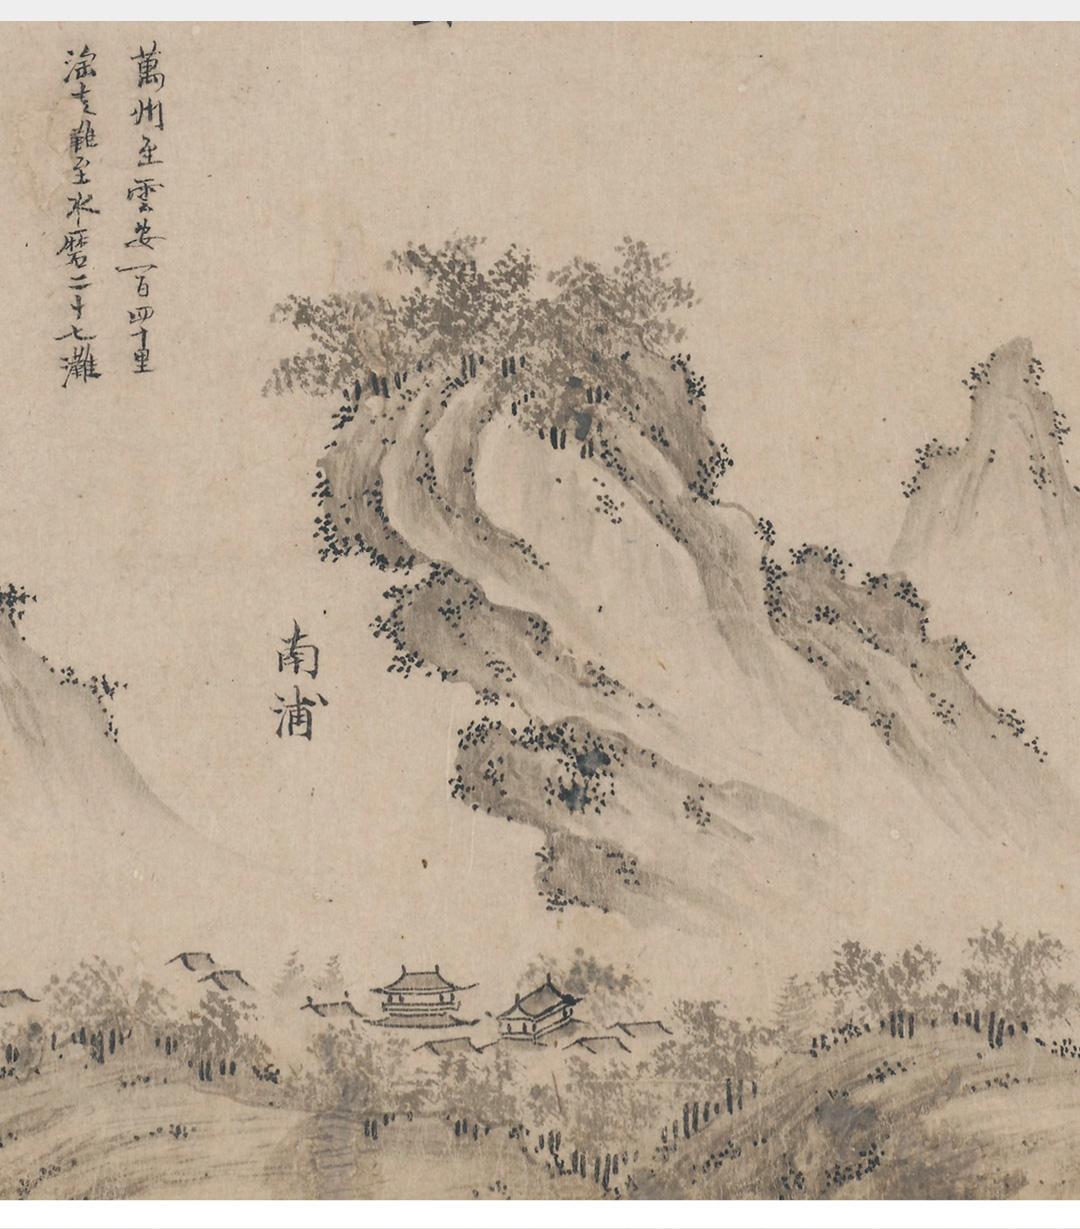 萬州至雲安一百四十里
至水磨二十七灘
南浦